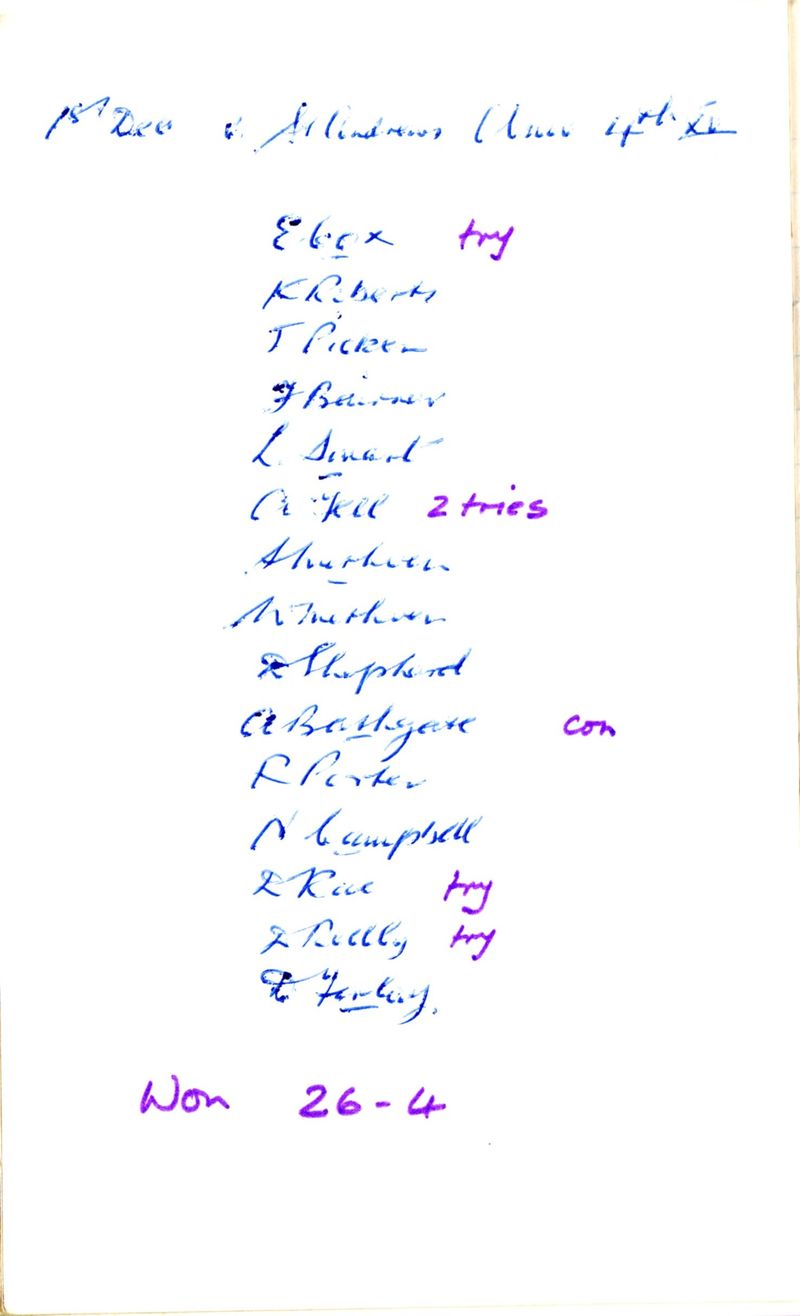 1st Dec v St Andrews Univ 4th XV
E Cox try
K Roberts
T Picken
J Bairner
L. Smart
A Fell 2 tries
A
N Methven
D Shepherd
A Bathgate con
R Porter
N Campbell
D Rae try
J Reilly try
D
Won 26-4